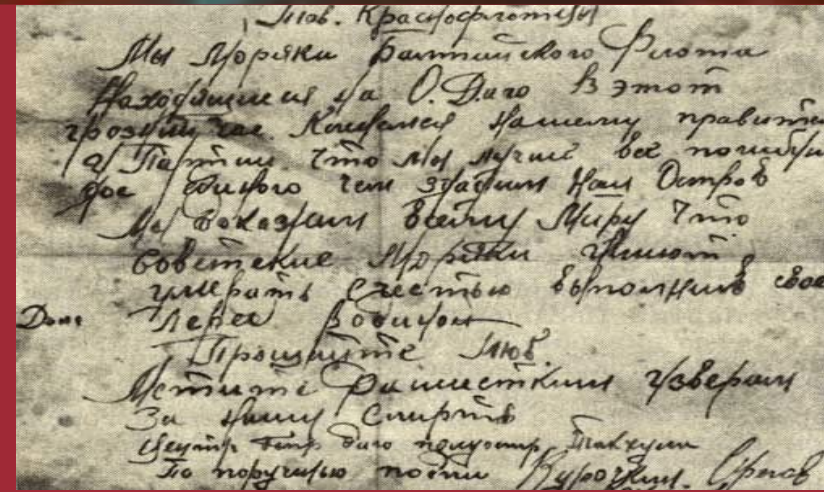 Тов. Краснофлотцы
Мы Моряки Балтийского Флота
Находящиеся на О. Даго В этот
грозный час Клянемся Нашему правите
и Партии что мы лучше все погибнем
до единого чем здадим Наш Остров
Мы докажем всему Миру что
Советские Моряки умеют
умерать с честью выполнив свой
Долг Перед Родиной
Прощайте Тов.
Мстите Фашистким изверам
За Нашу Смерть
Даго полуостр. Тахкуна
По поручению подпи Курочкин. Орлов